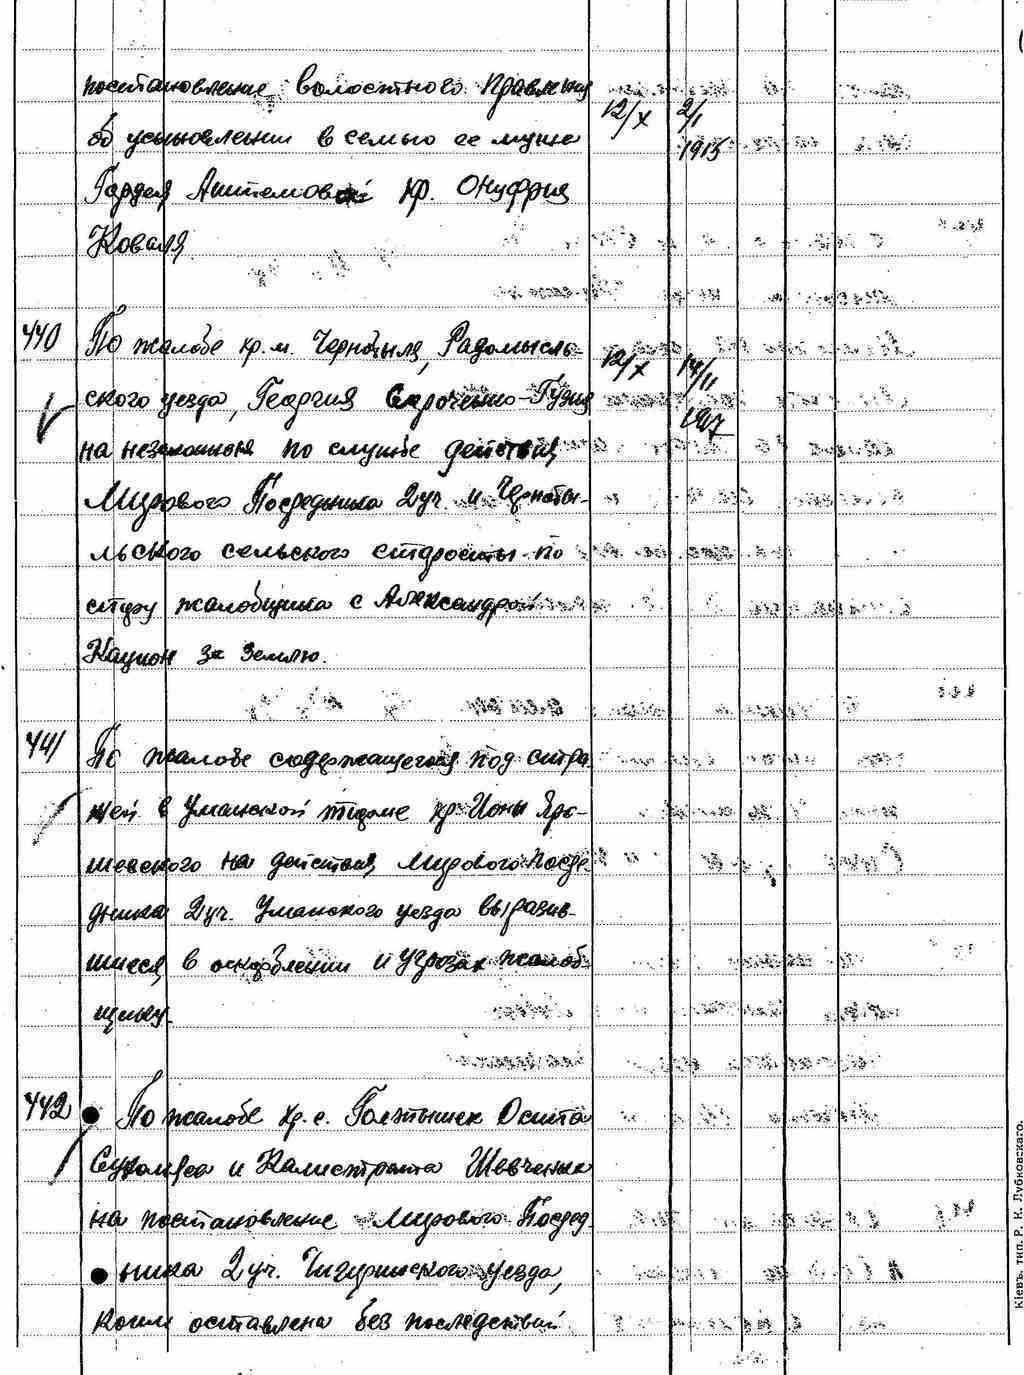 постановление волостного правления
об усыновлении в семью ее мужа 12/X 2/I 1915
Гордея кр. Онуфрия
Коваля
440 По жалобе кр. м. Чернобыля, Радомысль- 12/X 14/II 1917
ского уезда, Георгия
на незаконныя по службе действия
Мирового Посредника 2 уч. и Чернобы-
льского сельского старосты по
спору жалобщика с Александрой
Кацион за землю.
441 По жалобе содержащегося под стра
жей в Уманской тюрме кр. Ионы Яро-
шевского на действия Мирового Посре
дника 2 уч. Уманского уезда выразив-
шиеся в оскорблении и угрозах жалоб-
щику.
442 По жалобе кр. с. Осипа
и Калистрата Шевченка
на постановление Мирового Посред
ника 2 уч. Чигиринского уезда,
коим оставлена без последствий
Кіевъ, тип. Р. К. Лубковскаго.